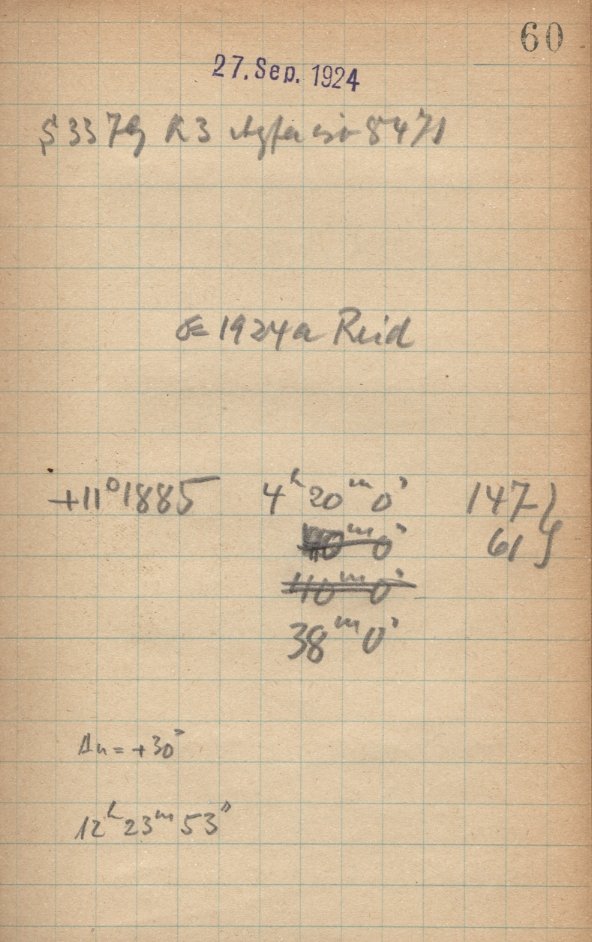 60
27. Sep. 1924
S 3379 R3 Agfa iso 8471
1924a Reid
+11°1885 4ʰ20ᵐ0ˢ 147}
0ᵐ0ˢ 61}
40ᵐ0ˢ
38ᵐ0ˢ
Δu=+30ˢ
12ʰ23ᵐ53ˢ